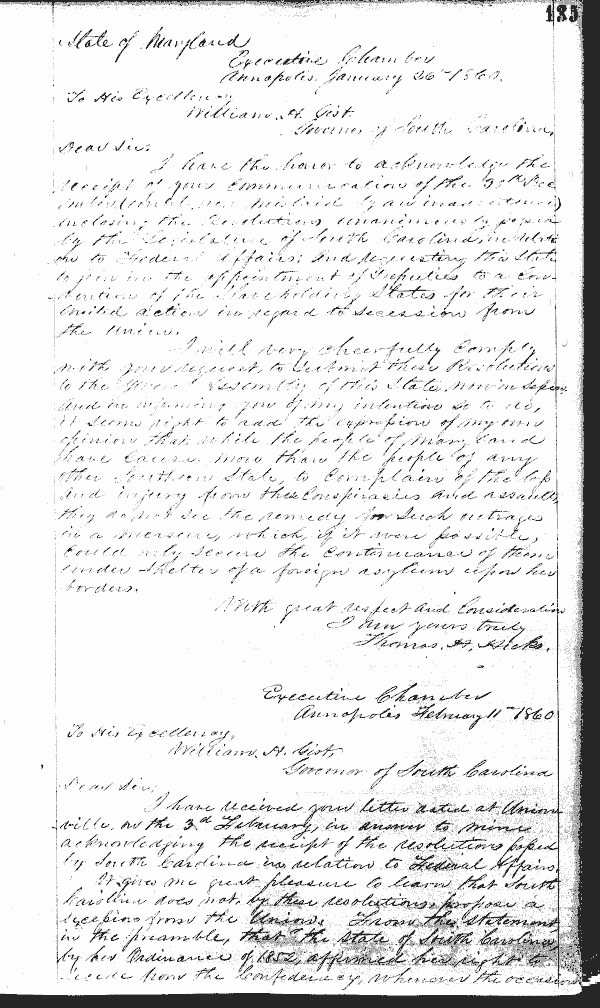 135
State of Maryland
Executive Chamber
Annapolis, January 26th 1860.
To His Excellency,
William. H. Gist.
Governor of South Carolina,
Dear Sir:
I have the honor to acknowledge the
receipt of your communication of the 30th Dec
inclosing the Resolutions unanimously passed
by the Legislature of South Carolina, in relati
on to Federal Affairs; and requesting this State
to join in the appointment of Deputies to a Con-
vention of the Slaveholding States for their
United action in regard to secession from
the Union.
I will very cheerfully comply
with your request, to submit these Resolutions
to the General Assembly of this State, now in Session.
And in informing you of my intention so to do,
it seems right to add the expression of my own
opinion that, while the people of Maryland
have cause, more than the people of any
other Southern State, to complain of the loss
and injury from these Conspiracies and assaults,
they do not see the remedy for such outrages
in a measure, which, if it were possible,
could only secure the continuance of them
under shelter of a foreign asylum upon her
borders.
With great respect and Consideration
I am yours truly
Thomas. H. Hicks.
Executive Chamber
Annapolis February 11th 1860
To His Excellency,
William. H. Gist,
Governor of South Carolina
Dear Sir;
I have received your letter dated at Union
ville, on the 3d February, in answer to mine
acknowledging the receipt of the resolutions passed
by South Carolina in relation to Federal Affairs.
It gives me great pleasure to learn that South
Carolina does not, by these resolutions propose a
seceping from the Union. From the statement
in the preamble, that "the State of South Carolina,
by her Ordinance of 1852, affirmed her right to
secede from the Confederacy, whenever the occasion